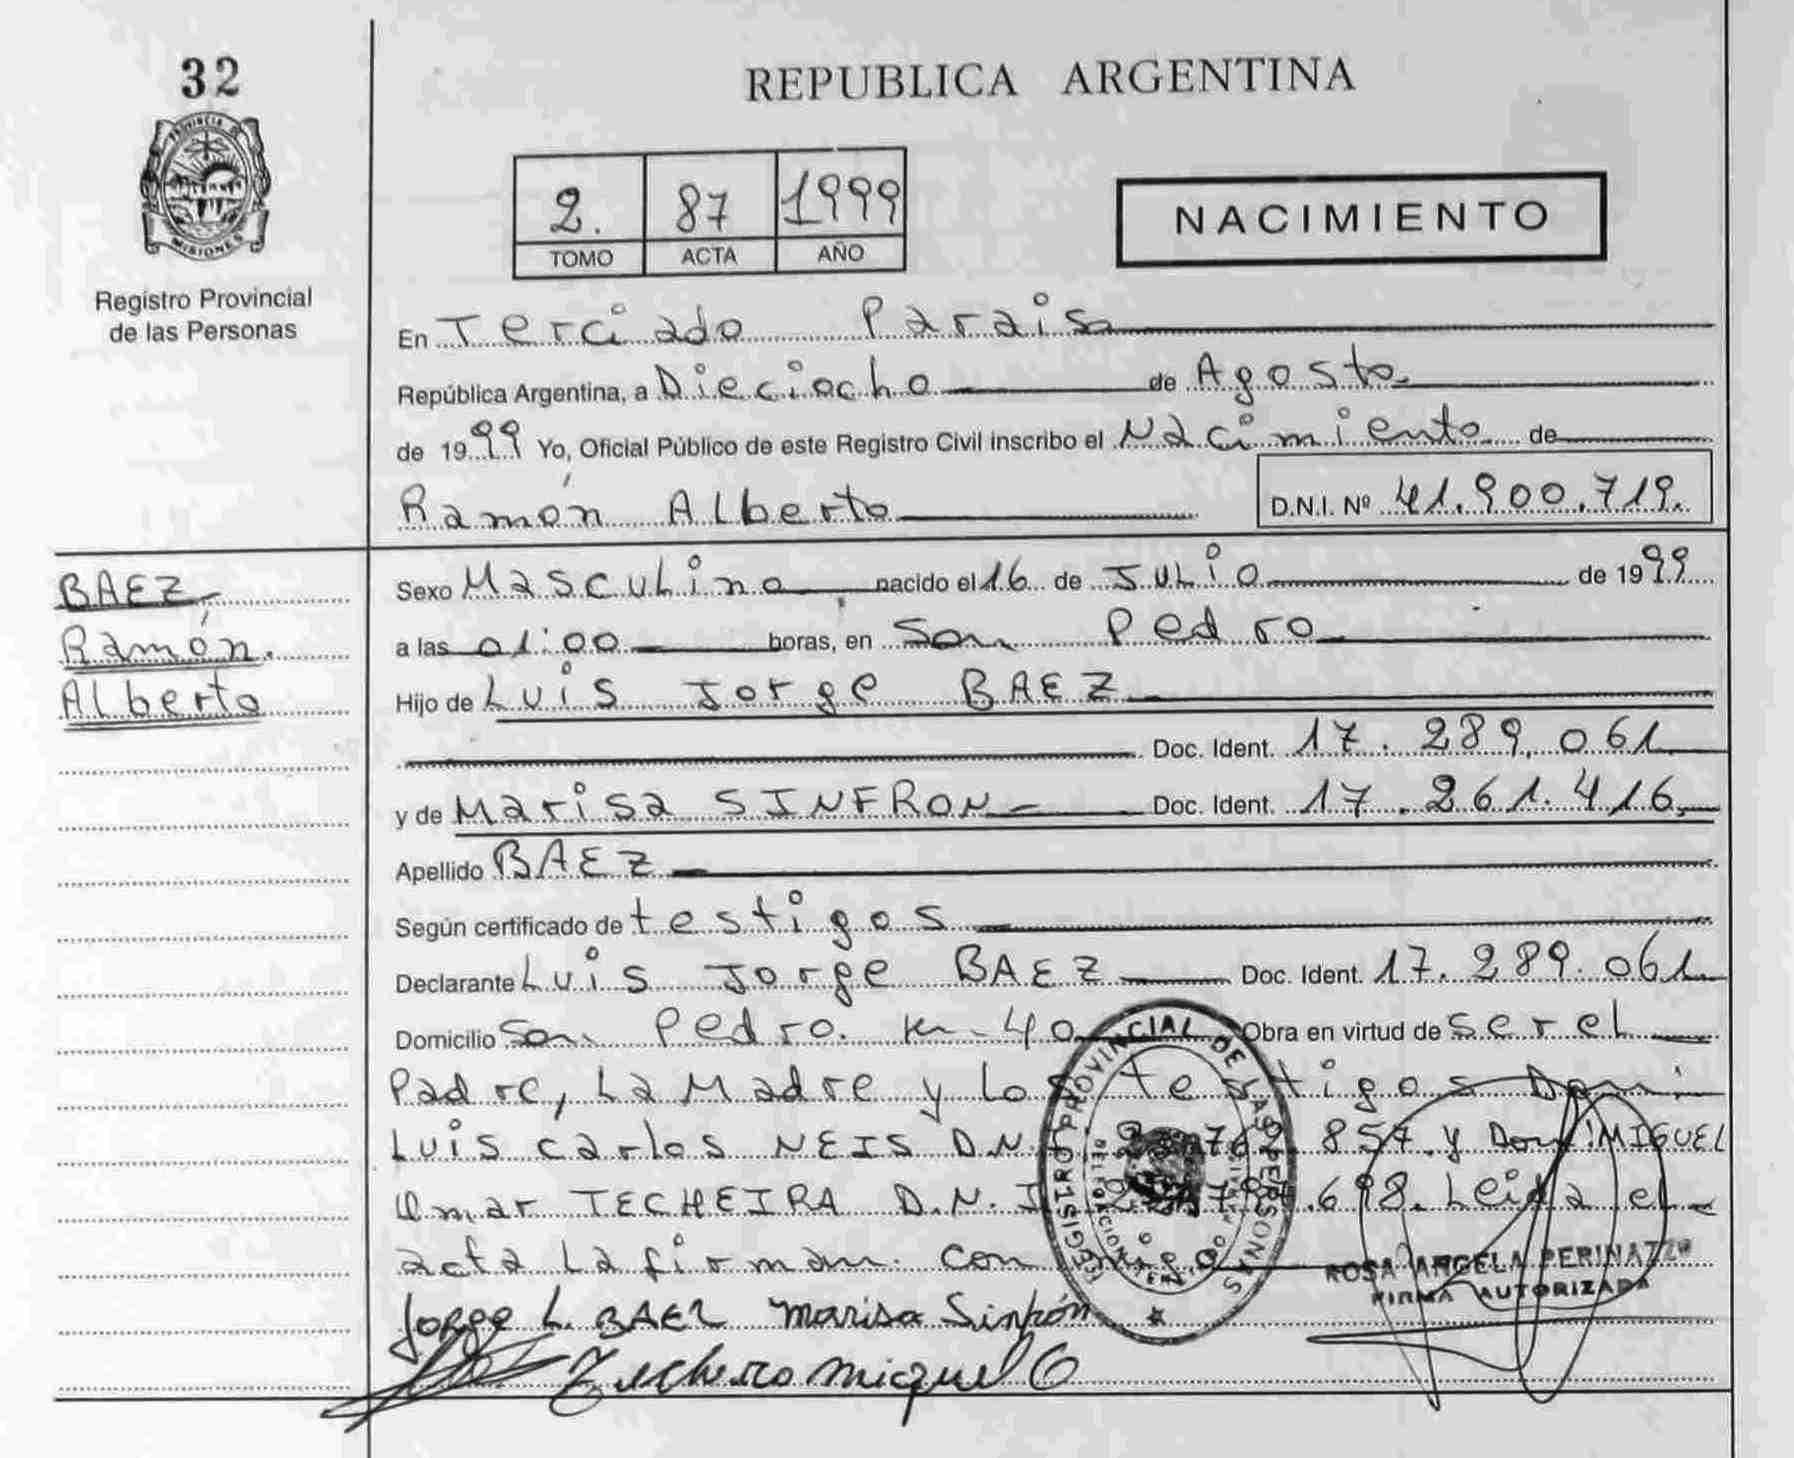 32
PROVINCIA DE
MISIONES
Registro Provincial
de las Personas
REPUBLICA ARGENTINA
2. 87 1999
TOMO ACTA AÑO
NACIMIENTO
En Terciado Paraiso
República Argentina, a Dieciocho de Agosto
de 1999 Yo, Oficial Público de este Registro Civil inscribo el Nacimiento de
Ramón Alberto D.N.I. Nº 41.900.719.
BAEZ
Ramón
Alberto
Sexo Masculino nacido el 16 de Julio de 1999
a las 01:00 horas, en San Pedro
Hijo de Luis Jorge BAEZ
Doc. Ident. 17.289.061
y de Marisa SINFRON Doc. Ident. 17.261.416
Apellido BAEZ
Según certificado de testigos
Declarante Luis Jorge BAEZ Doc. Ident. 17.289.061
Domicilio San Pedro. Km-40 Obra en virtud de ser el
Padre, La Madre y Los testigos Don:
Luis Carlos NEIS D.N.I 857. y Don: MIGUEL
Omar TECHEIRA D.N.I .698. Leida el
acta La firman. conmigo
REGISTRO PROVINCIAL DE LAS PERSONAS
ROSA ANGELA PERINAZZO
FIRMA AUTORIZADA
Jorge L. BAEZ Marisa Sinfrón
Miguel O